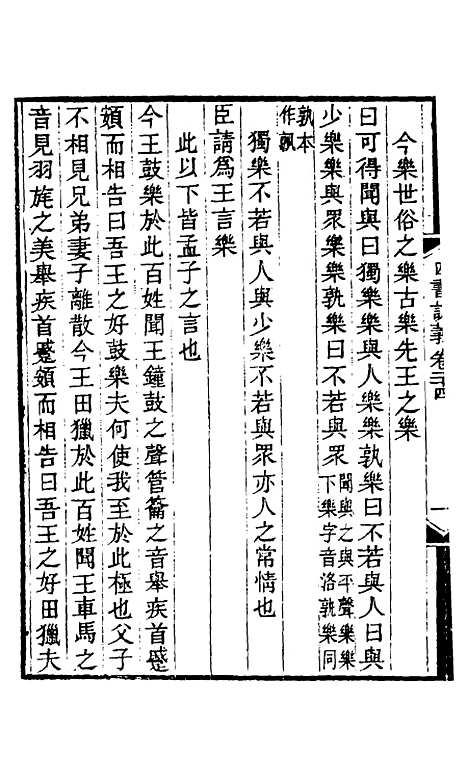 今樂世俗之樂古樂先王之樂
曰可得聞與曰獨樂樂與人樂樂孰樂曰不若與人曰與
少樂樂與眾樂樂孰樂曰不若與眾聞與之與平聲樂樂
下樂字音洛孰樂同
孰本
作𦏧
獨樂不若與人與少樂不若與眾亦人之常情也
臣請爲王言樂
此以下皆孟子之言也
今王鼓樂於此百姓聞王鐘鼓之聲管籥之音舉疾首蹙
頞而相告曰吾王之好鼓樂夫何使我至於此極也父子
不相見兄弟妻子離散今王田獵於此百姓聞王車馬之
音見羽旄之美舉疾首蹙頞而相告曰吾王之好田獵夫
四書
卷二十四
一